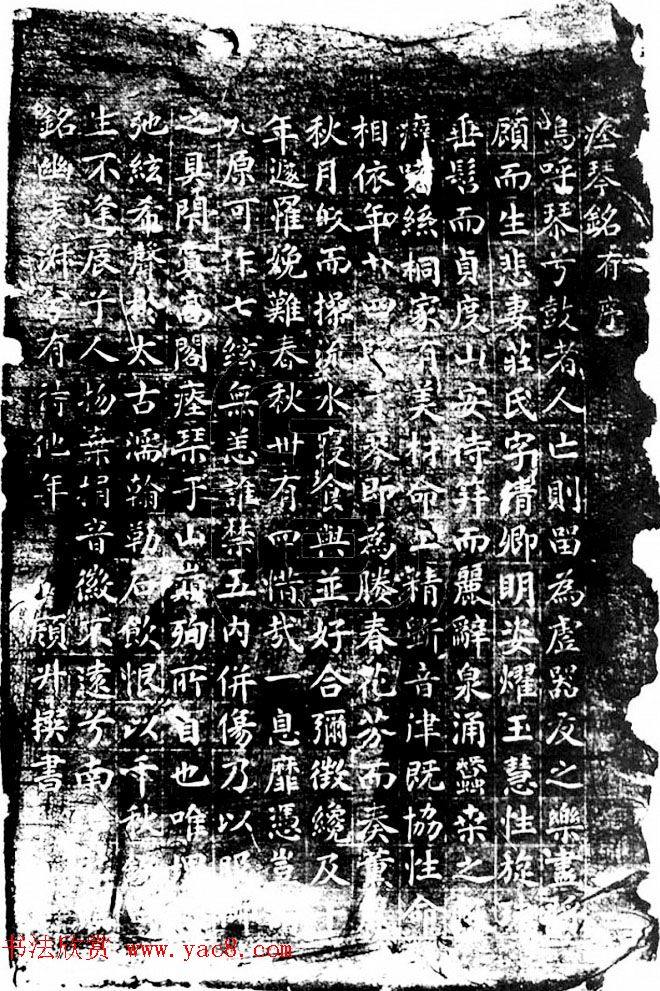 瘞琴銘有序
嗚呼琴兮鼓者人亡則留為虛器反之樂盡
顧而生悲妻莊氏字清卿明姿燿玉慧性旋
垂髫而貞度山安待笄而麗辭泉涌蠶桑之
絲桐家有美材命工精斲音津既協性命
相依年廿四琴即為媵春花芬而奏薰
秋月皎而操流水寢食與並好合彌徴纔及
年遽罹娩難春秋卅有四惜哉一息靡憑豈
九原可作七絃無恙誰禁五內併傷乃以
之具閉高閣瘞琹于山巔殉所自也唯
弛絃希聲於太古濡翰勒石飲恨以千秋
生不逢辰子人物棄捐音徽不遠兮南
銘幽表兮有待他年 顧升撰書
书法欣赏 www.yac8.com